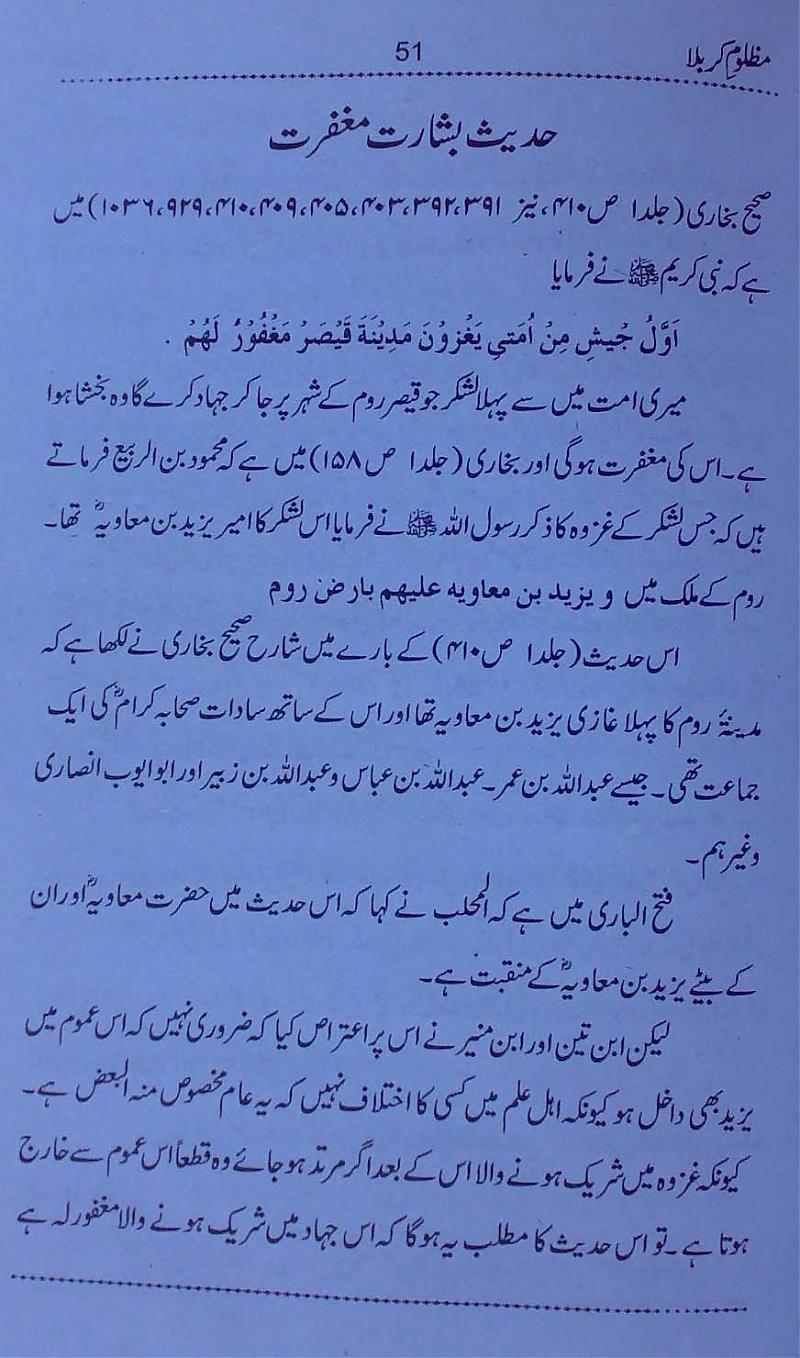 مظلومِ کربلا
51
حدیث بشارت مغفرت
صحیح بخاری (جلد ۱ ص ۴۱۰، نیز ۳۹۱، ۳۹۲، ۴۰۳، ۴۰۵، ۴۰۹، ۴۱۰، ۹۲۹، ۱۰۳۶) میں
ہے کہ نبی کریم ﷺ نے فرمایا
اَوَّلُ جُیشٍ مِنْ اُمَتیِ یَغْزوُنَ مَدِیْنَةَ قَیْصَرْ مَغْفُورُ لَهُمْ .
میری امت میں سے پہلا لشکر جو قیصر روم کے شہر پر جا کر جہاد کرے گا وہ بخشا ہوا
ہے۔ اس کی مغفرت ہوگی اور بخاری (جلد ۱ ص ۱۵۸) میں ہے کہ محمود بن الربیع فرماتے
ہیں کہ جس لشکر کے غزوہ کا ذکر رسول اللہ ﷺ نے فرمایا اس لشکر کا امیر یزید بن معاویہؓ تھا۔
روم کے ملک میں و یزید بن معاویه علیهم بارض روم
اس حدیث (جلد ۱ ص ۴۱۰) کے بارے میں شارح صحیح بخاری نے لکھا ہے کہ
مدینۂ روم کا پہلا غازی یزید بن معاویہ تھا اور اس کے ساتھ سادات صحابہ کرامؓ کی ایک
جماعت تھی۔ جیسے عبداللہ بن عمر۔ عبداللہ بن عباس و عبداللہ بن زبیر اور ابوایوب انصاری
وغیرہم۔
فتح الباری میں ہے کہ المحلب نے کہا کہ اس حدیث میں حضرت معاویہؓ اور ان
کے بیٹے یزید بن معاویہؓ کے منقبت ہے۔
لیکن ابن تین اور ابن منیر نے اس پر اعتراض کیا کہ ضروری نہیں کہ اس عموم میں
یزید بھی داخل ہو کیونکہ اہل علم میں کسی کا اختلاف نہیں کہ یہ عام مخصوص منہ البعض ہے۔
کیونکہ غزوہ میں شریک ہونے والا اس کے بعد اگر مرتد ہو جائے وہ قطعاً اس عموم سے خارج
ہوتا ہے۔ تو اس حدیث کا مطلب یہ ہوگا کہ اس جہاد میں شریک ہونے والا مغفور لہ ہے